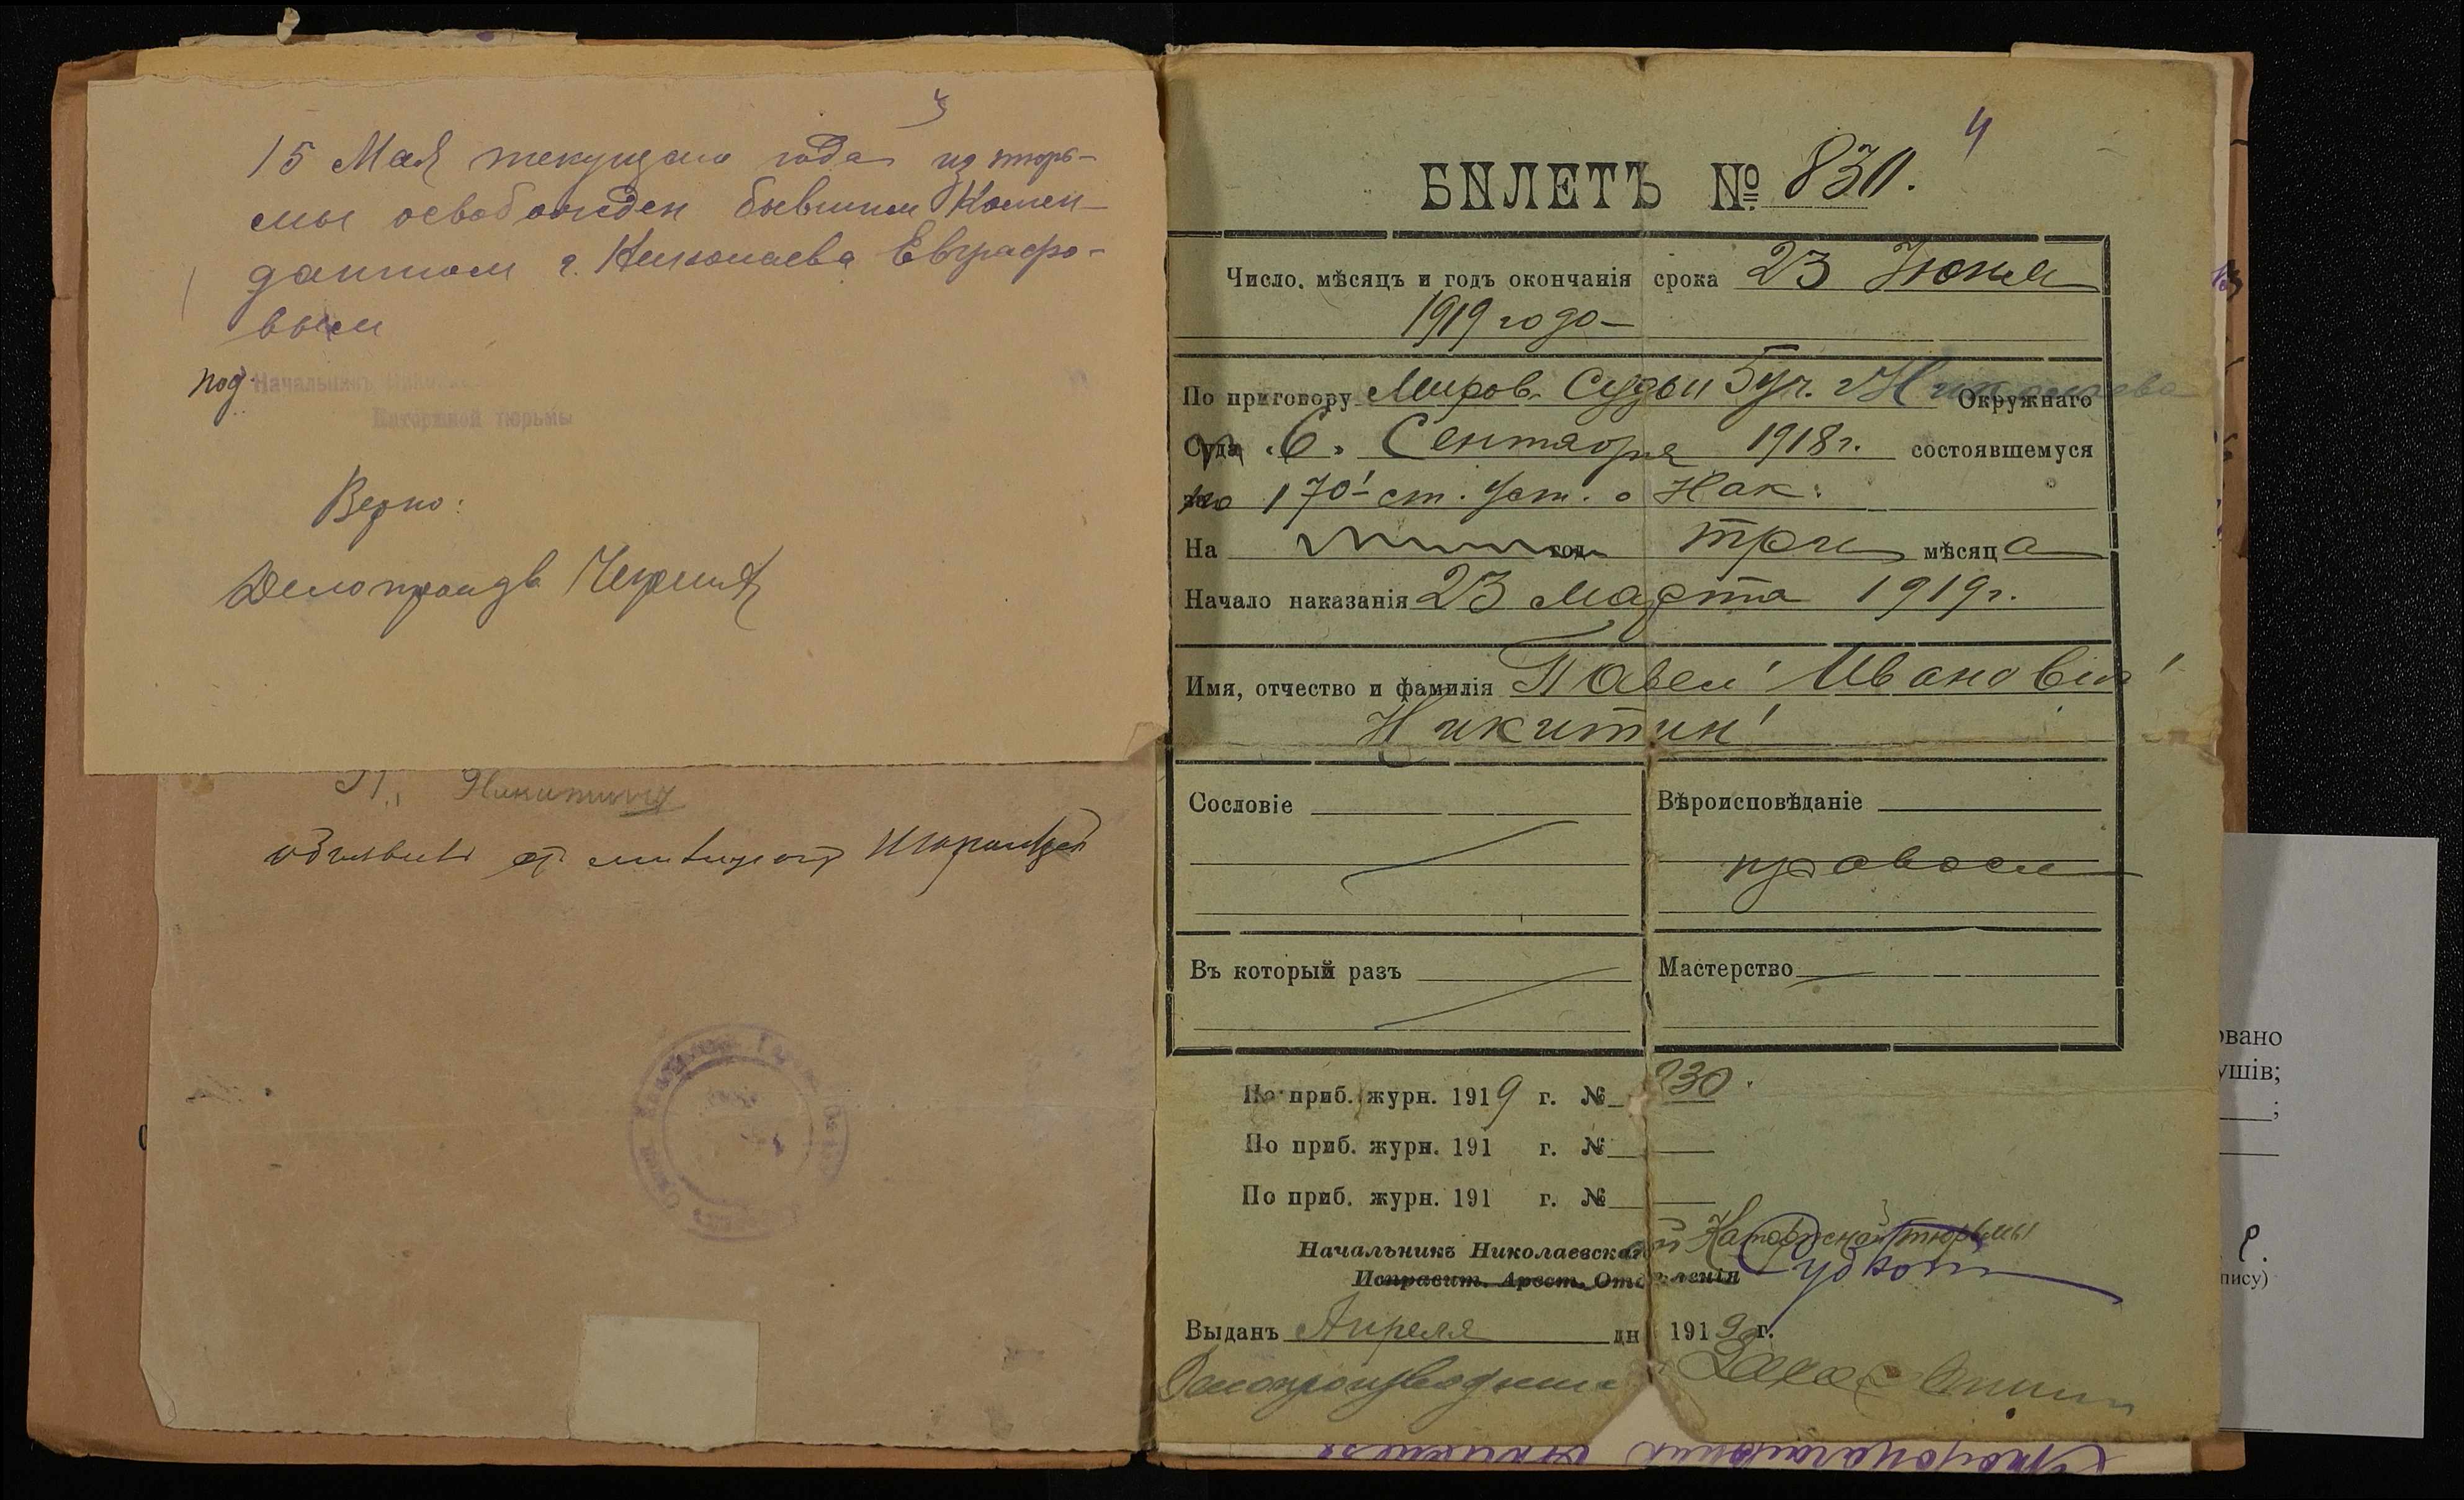 3
15 Мая текущаго года из тюрь-
мы освобожден бывшим Комен-
дантом г. Николаева Евграфо-
вым
под.
Начальникъ
Каторжной тюрьмы
Верно:
Делопроизв.
П. Никитину
4
БИЛЕТЪ № 830.
Число, мѣсяцъ и годъ окончанія срока 23 Июня
1919 года
По приговору Миров. Судьи 5 уч. г. Николаева Окружнаго
Суда „6" Сентября 1918 г. состоявшемуся
по 170¹ ст. Уст. о Нак.
На год три мѣсяца
Начало наказанія 23 марта 1919 г.
Имя, отчество и фамилія Павел Иванович
Никитин
Сословіе
Вѣроисповѣданіе
правосл
Въ который разъ
Мастерство
По приб. журн. 1919 г. № 230
По приб. журн. 191 г. №
По приб. журн. 191 г. №
Начальникъ Николаевской Каторжной тюрьмы
Исправит. Арест. Отдѣленія
Выданъ Апреля дн 1919 г.
Делопроизводитель
овано
ушів;
;
пису)